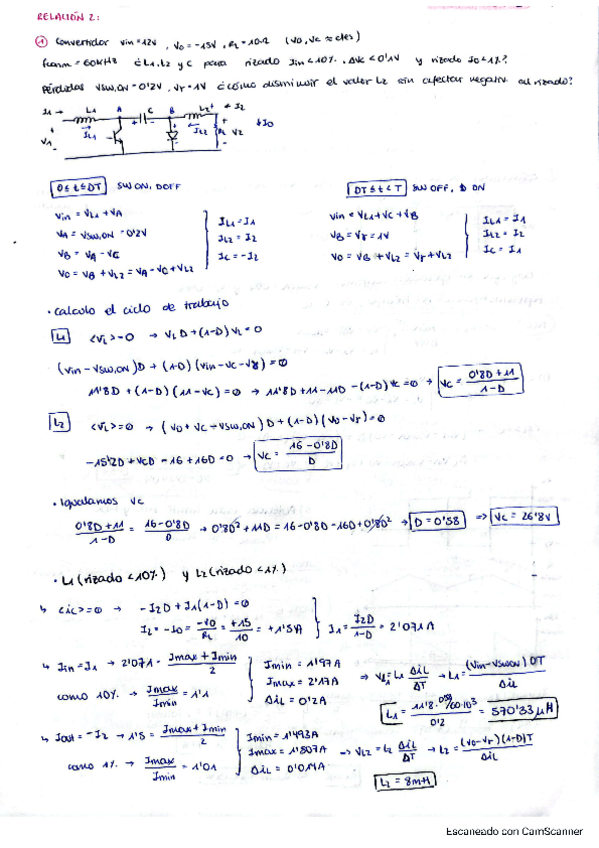 RELACIÓN 2:
① Convertidor Vin=12V, Vo=-15V, RL=10Ω (Vo, Vc ≈ ctes)
fconm = 60kHz ¿L1, L2 y C para rizado Iin<10%, ΔVc<0'1V y rizado Io<1%?
Pérdidas VSW,ON=0'2V, Vγ=1V ¿cómo disminuir el valor L2 sin afectar negativ. al rizado?
I1→ L1 A C B L2 ← I2
+ V1 - IL1 + - IL2 RL V2 ↓Io
0≤t≤DT SW ON, D OFF
DT≤t<T SW OFF, D ON
Vin = VL1 + VA
VA = VSW,ON = 0'2V
VB = VA - VC
Vo = VB + VL2 = VA - VC + VL2
IL1 = I1
IL2 = I2
IC = -I2
Vin = VL1 + VC + VB
VB = Vγ = 1V
Vo = VB + VL2 = Vγ + VL2
IL1 = I1
IL2 = I2
IC = I1
· Calculo el ciclo de trabajo
L1 <VL>=0 → VL D + (1-D) VL = 0
(Vin - VSW,ON) D + (1-D) (Vin - VC - Vγ) = 0
11'8D + (1-D) (11 - VC) = 0 → 11'8D + 11 - 11D - (1-D) VC = 0 → VC = 0'8D + 11 / 1-D
L2 <VL>=0 → (Vo + VC - VSW,ON) D + (1-D) (Vo - Vγ) = 0
-15'2D + VC D - 16 + 16D = 0 → VC = 16 - 0'8D / D
· Igualamos VC
0'8D + 11 / 1-D = 16 - 0'8D / D → 0'8D² + 11D = 16 - 0'8D - 16D + 0'8D² → D = 0'58 ⇒ VC = 26'8V
· L1 (rizado <10%) y L2 (rizado <1%)
↳ <ic>=0 → -I2 D + I1 (1-D) = 0
I2 = -Io = -Vo / RL = +15 / 10 = +1'5A
I1 = I2 D / 1-D = 2'071A
↳ Iin = I1 → 2'071 = Imax + Imin / 2
como 10% → Imax / Imin = 1'1
Imin = 1'97A
Imax = 2'17A
ΔiL = 0'2A
⇒ VL1 = L1 ΔiL / ΔT → L1 = (Vin - VSW,ON) DT / ΔiL
L1 = 11'8 · 0'58/60·10³ / 0'2 = 570'33 µH
↳ Iout = -I2 → 1'5 = Imax + Imin / 2
como 1% → Imax / Imin = 1'01
Imin = 1'493A
Imax = 1'507A
ΔiL = 0'014A
⇒ VL2 = L2 ΔiL / ΔT → L2 = (Vo - Vγ) (1-D) T / ΔiL
L2 = 8mH
Escaneado con CamScanner